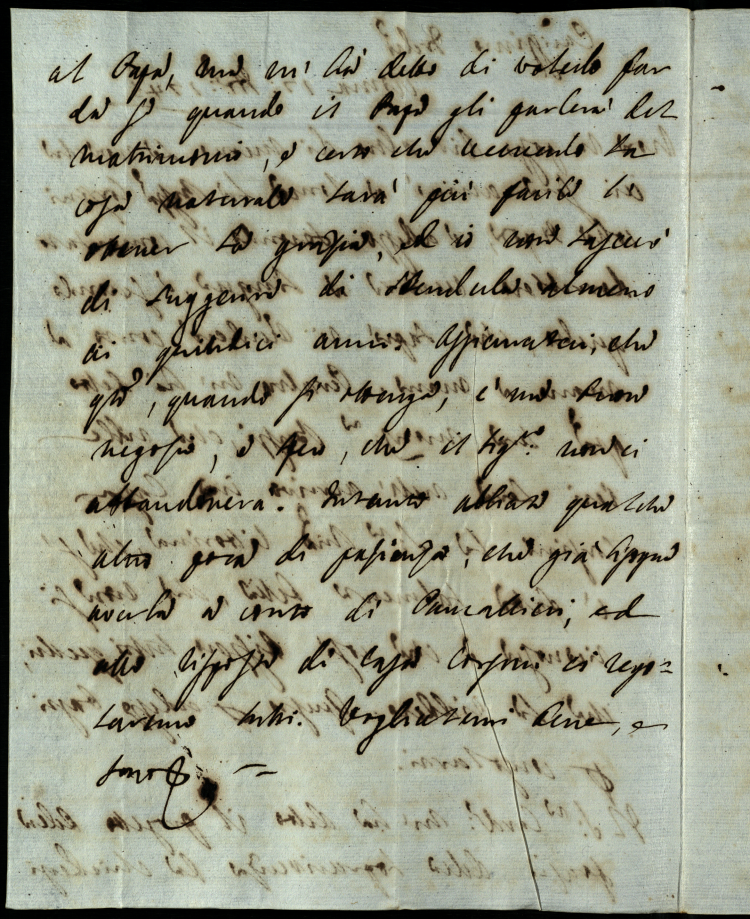 al Papa, ma m'ha detto di volerlo far
da se quando il Papa gli parlerà del
matrimonio, e certo che vedendo la
cosa naturale sarà più facile l'
ottener la grazia, ed io non lascerò
di suggerire di stenderla almeno
ai quindici anni. Assicuratevi, che
q.to, quando si ottenga, è un buon
negozio, e spero, che il Sig.re non ci
abbandonerà. Intanto abbiate qualche
altro poco di pazienza, che già
averla a conto di Cancellieri, ed
alla risposta di Casa Corsini ci rego=
laremo tutti. Vogliatemi bene, e
sono